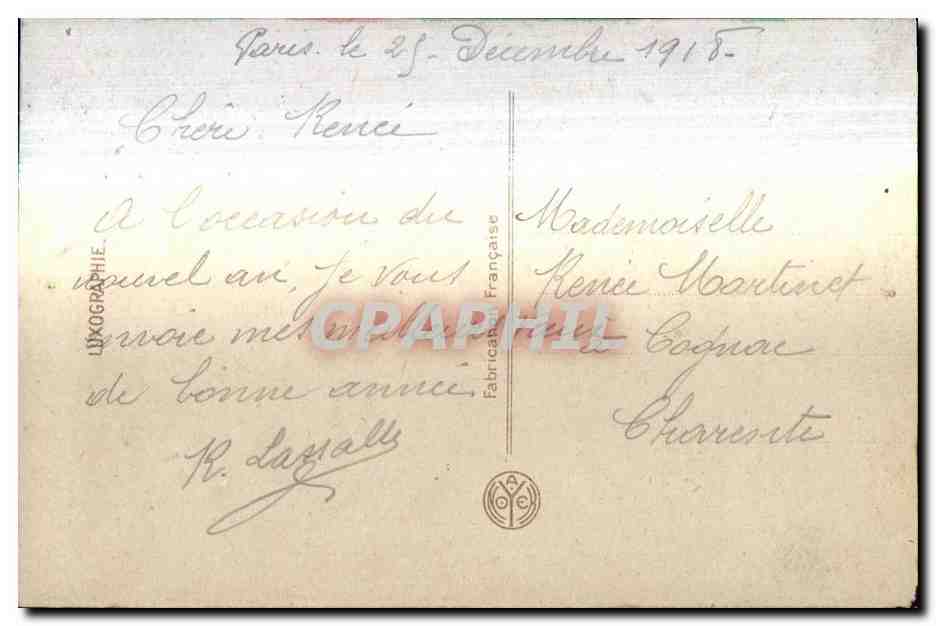 Paris. le 25- Décembre 1918-
Chère Renée
A l'occasion du
nouvel an, Je vous
envoie mes meilleurs vœux
de bonne année
R. Lassalle
Mademoiselle
Renée Martinet
à Cognac
Charente
LUXOGRAPHIE
Fabrication Française
CPAPHIL
A
O E